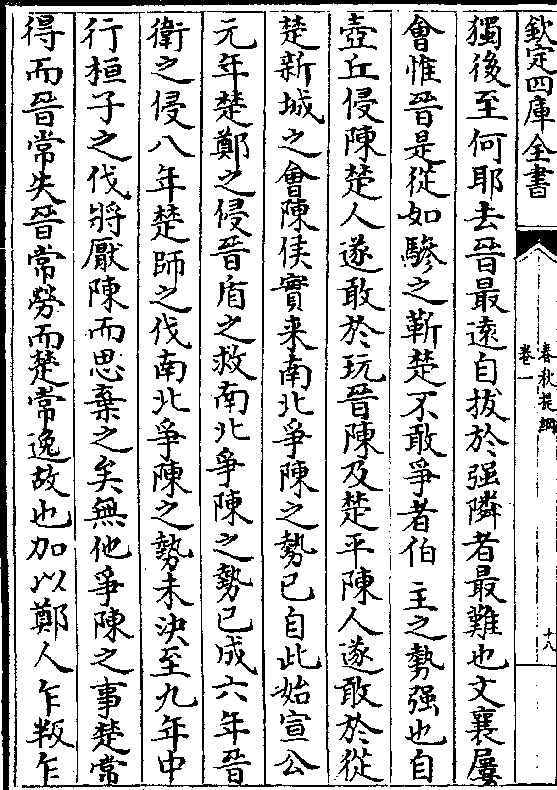 欽定四庫全書
春秋提綱
卷一
十八
獨後至何耶去晉最遠自拔於强隣者最難也文襄屢
會惟晉是從如驂之靳楚不敢爭者伯主之勢强也自
壺丘侵陳楚人遂敢於玩晉陳及楚平陳人遂敢於從
楚新城之會陳侯實来南北爭陳之勢已自此始宣公
元年楚鄭之侵晉盾之救南北爭陳之勢已成六年晉
衛之侵八年楚師之伐南北爭陳之勢未決至九年中
行桓子之伐將厭陳而思棄之矣無他爭陳之事楚常
得而晉常失晉常勞而楚常逸故也加以鄭人乍叛乍